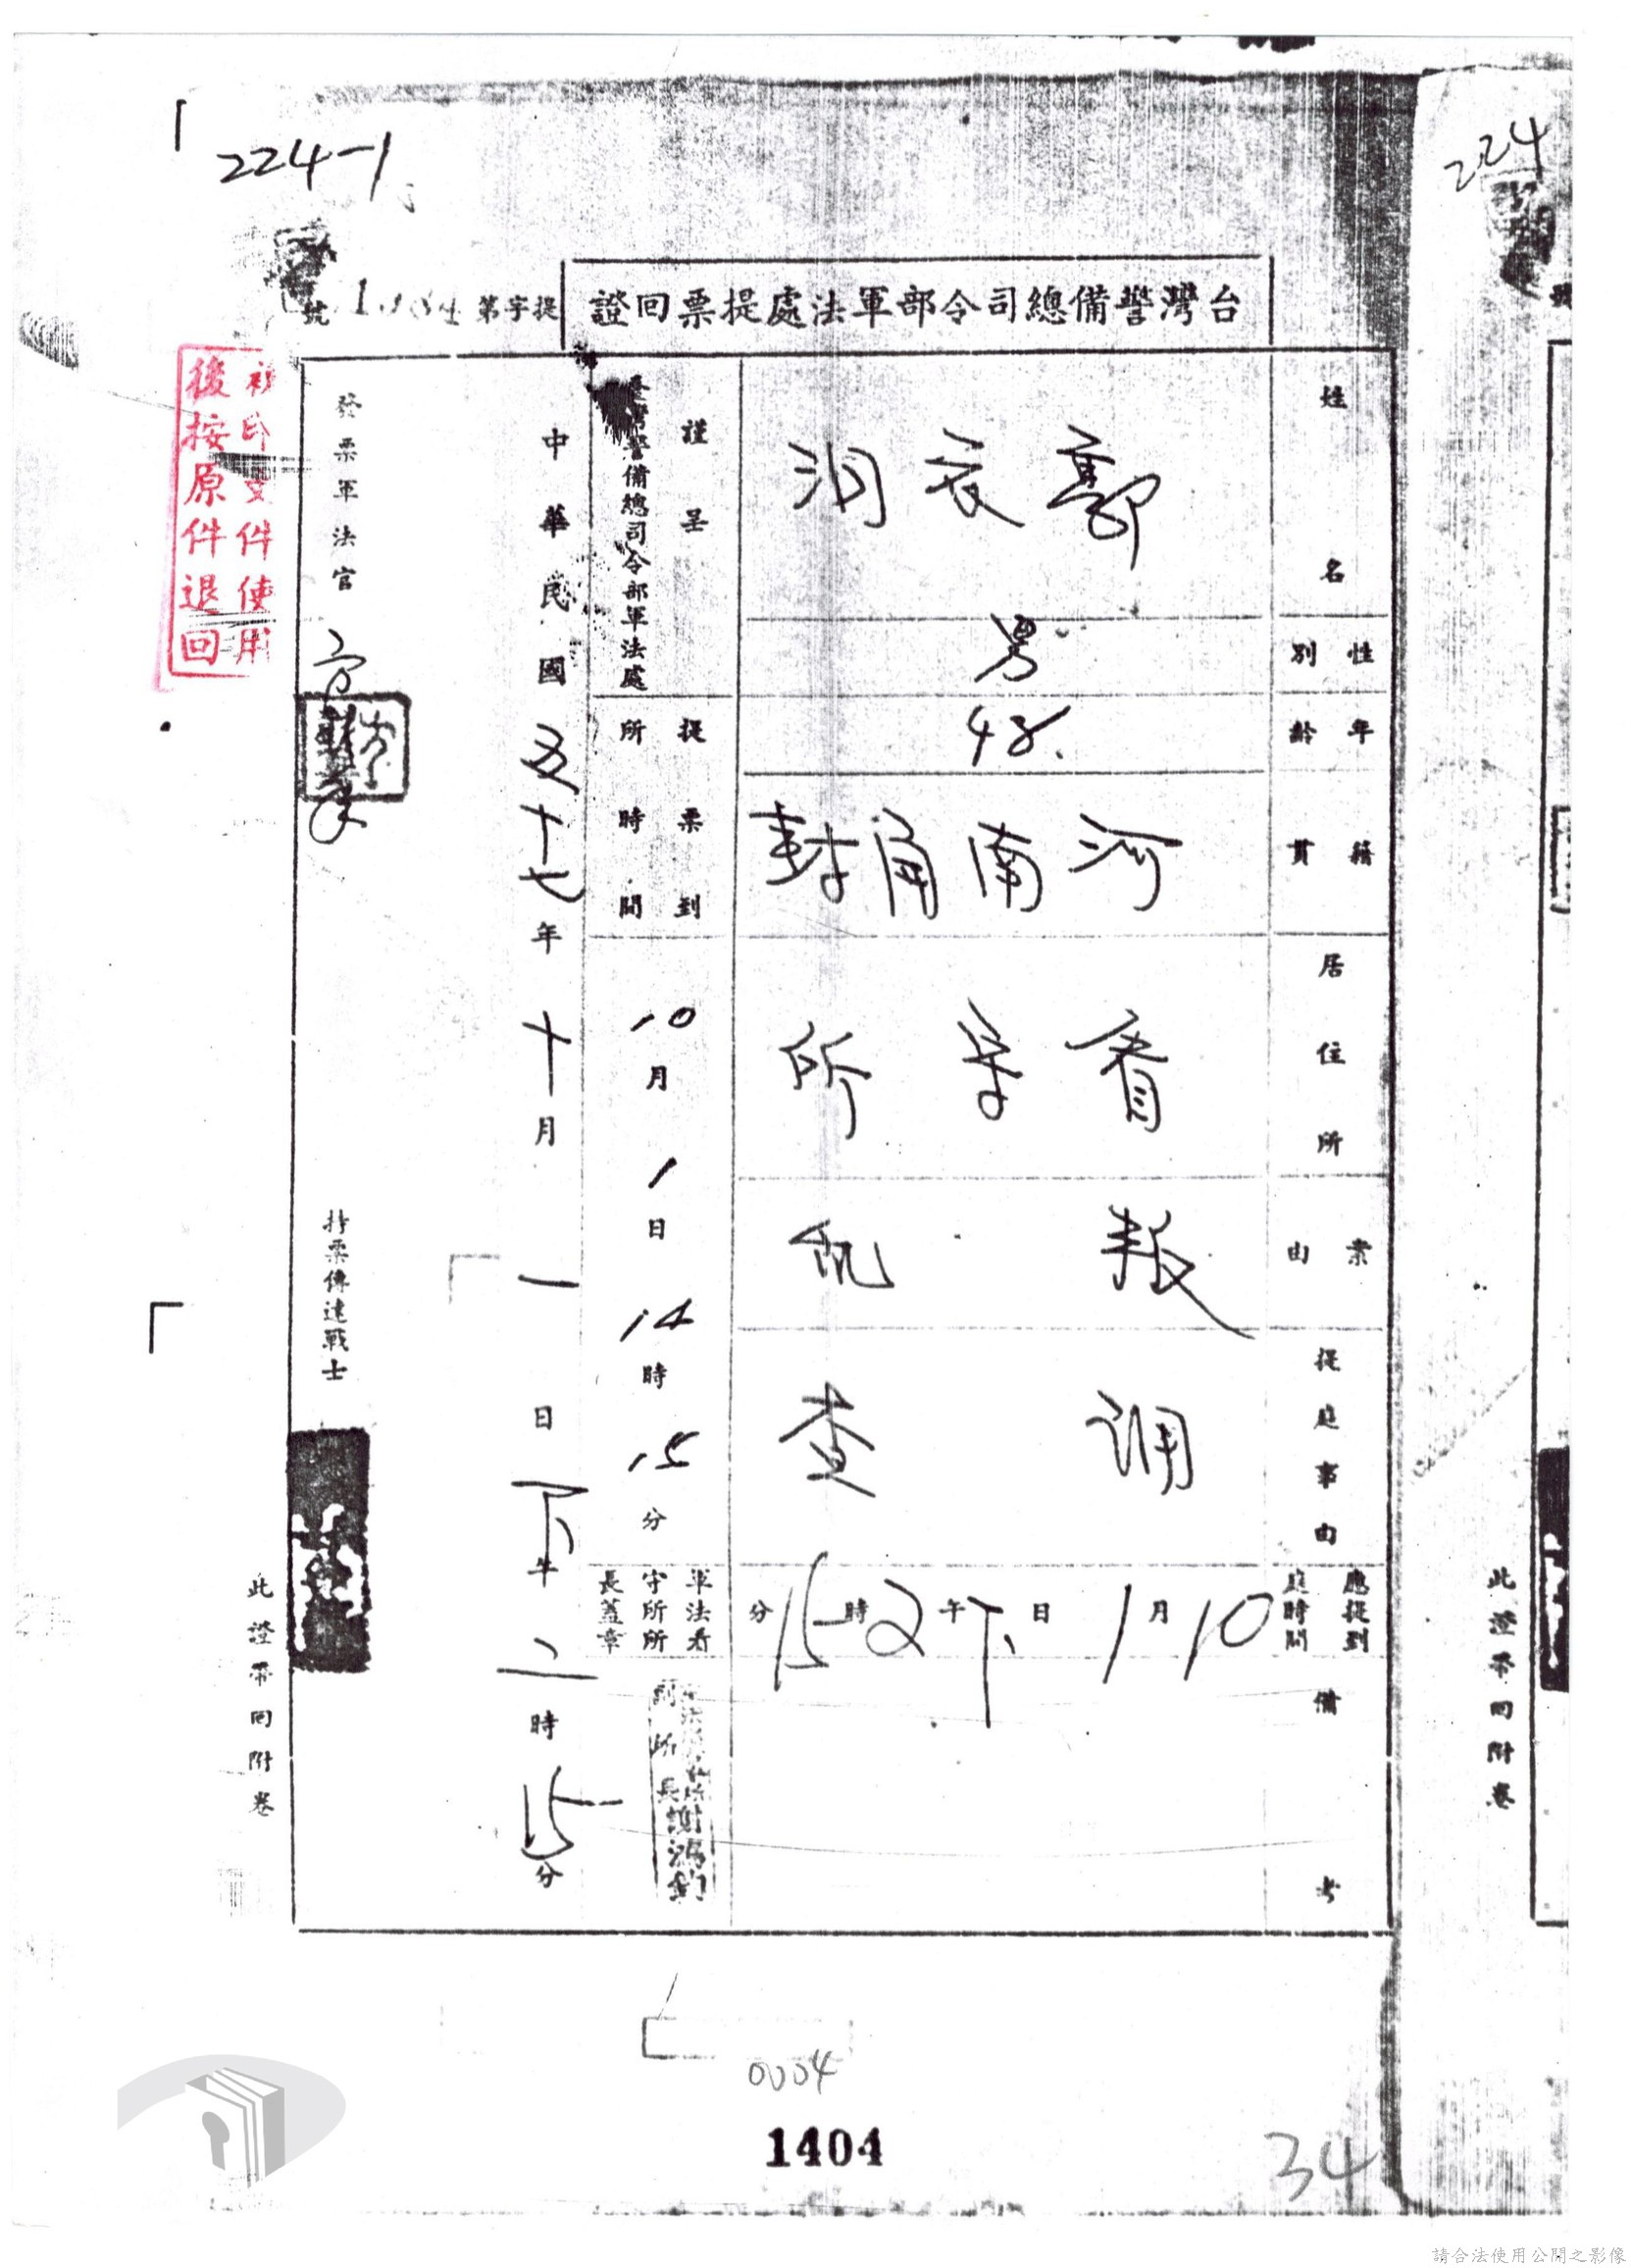 224-1
224
台灣警備總司令部軍法處提票回證
提字第
號
姓名
郭衣洞
性別
男
年齡
48.
籍貫
河南開封
居住所
看守所
案由
叛乱
提庭事由
調查
應提到庭時間
10月1日下午2時15分
備考
謹呈
臺灣警備總司令部軍法處
提票到所時間
10月1日14時15分
軍法看守所所長蓋章
副所長謝鴻鈞
中華民國五十七年十月一日下午二時15分
發票軍法官
持票傳達戰士
此證帶回附卷
此證帶回附卷
文件使用
後按原件退回
0004
1404
34
請合法使用公開之影像